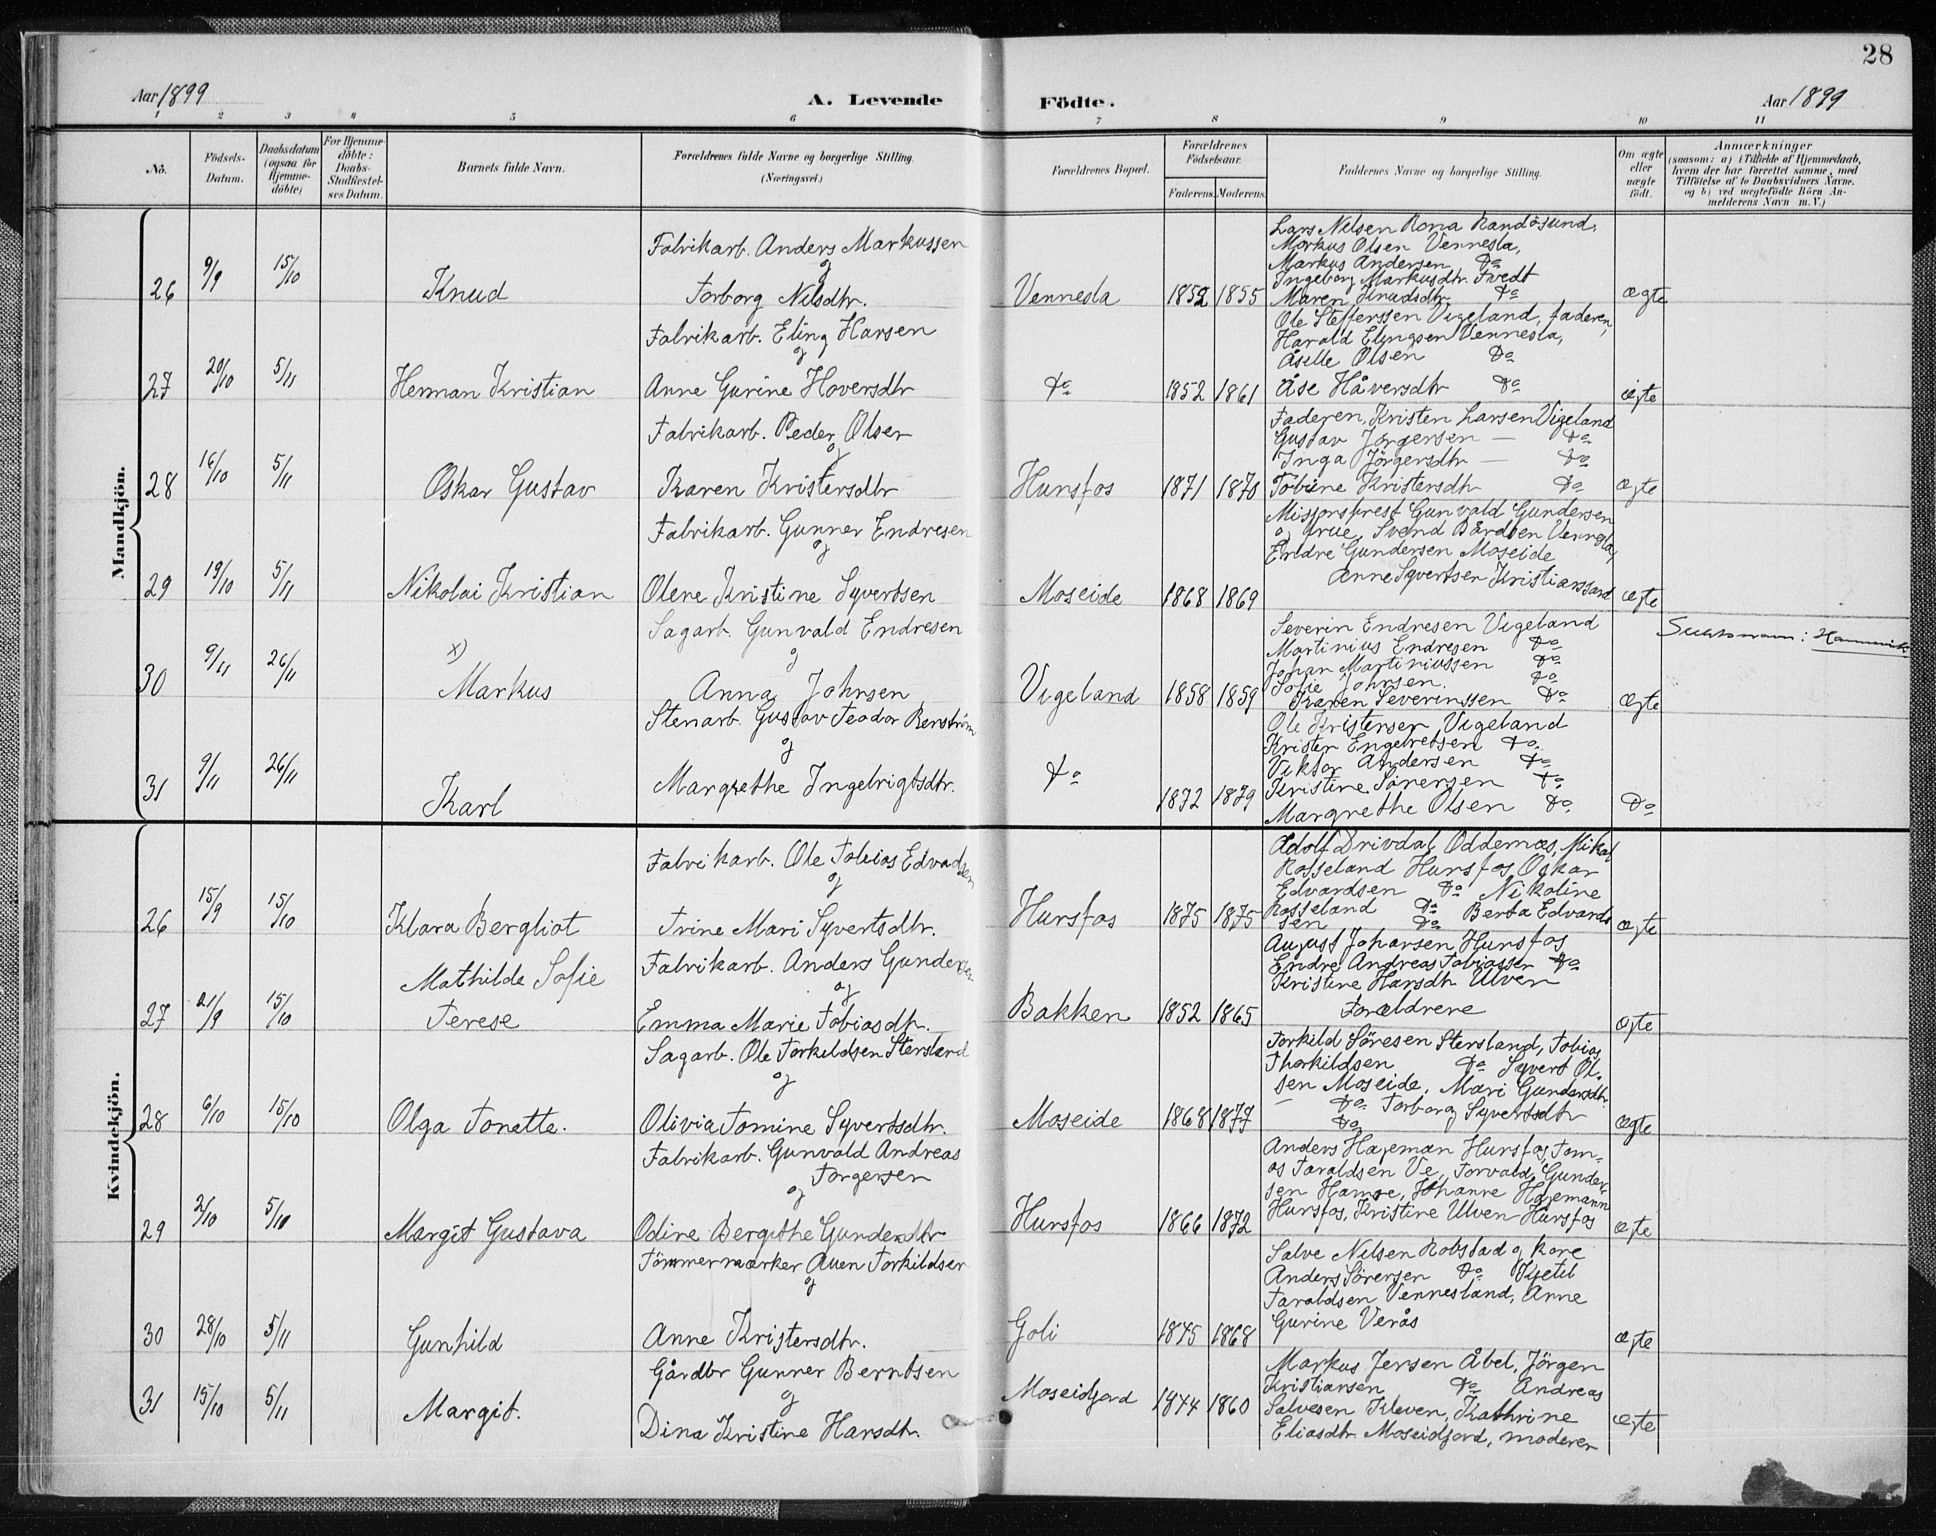 28
Aar 1899
A. Levende Födte.
Aar 1899
1 2 3 4 5 6 7 8 9 10 11
No.
Födsels-
Datum.
Daabsdatum
(ogsaa for
Hjemme-
döbte)
For Hjemme-
döbte:
Daabs-
Stadfæstel-
ses Datum.
Barnets fulde Navn.
Forældrenes fulde Navne og borgerlige Stilling.
(Næringsvei.)
Forældrenes Bopæl.
Forældrenes
Födselsaar.
Faderens. Moderens.
Faddernes Navne og borgerlige Stilling.
Om ægte
eller
uægte
födt.
Anmærkninger
(saasom: a) i Tilfælde af Hjemmedaab,
hvem der har forrettet samme, med
Tilföielse af to Daabsvidners Navne.
og b) ved uægtefödte Börn An-
melderens Navn m. V.)
Mandkjön.
26 9/9 15/10 Knud
Fabrikarb. Anders Markussen
og
Torborg Nilsdtr.
Vennesla 1852 1855
Lars Nilsen Rona Randösund,
Markus Olsen Vennesla,
Markus Andersen Do
Ingeborg Markusdtr. Tvedt
Maren Knudsdtr. Do
Ægte
27 20/10 5/11 Herman Kristian
Fabrikarb. Eling Hansen
og
Anne Gurine Hoversdtr
Do 1852 1861
Ole Steffenssen Vigeland, faderen,
Harald Elingsen Vennesla,
Åselle Olsen Do
Åse Håversdtr Do
ægte
28 16/10 5/11 Oskar Gustav
Fabrikarb. Peder Olsen
og
Karen Kristensdtr
Hunsfos 1871 1870
Faderen, Kristen Larsen Vigeland
Gustav Jörgensen — Do
Inga Jörgensdtr — Do
Tobine Kristensdtr Do
ægte
29 19/10 5/11 Nikolai Kristian
Fabrikarb. Gunner Endresen
og
Olene Kristine Syvertsen
Moseide 1868 1869
Missjonsprest Gunvald Gundersen
og frue, Svend Bårdsen Vennesla,
Endre Gundersen Moseide
Anne Syvertsen Kristianssand
ægte
30 9/11 26/11 x) Markus
Sagarb. Gunvald Endresen
og
Anna Johnsen
Vigeland 1858 1859
Severin Endresen Vigeland
Martinius Endresen Do
Johan Martiniussen Do
Sofie Johnsen. Do
Karen Severinssen Do
Ægte
31 9/11 26/11 Karl
Stenarb. Gustav Teodor Benström
og
Margrethe Ingebrigtsdtr.
Do 1872 1879
Ole Kristensen Vigeland
Krister Engebretsen Do
Viktor Andersen Do
Kristine Sörensen Do
Margrethe Olsen Do
Do
Kvindekjön.
26 15/9 15/10 Klara Bergliot
Fabrikarb. Ole Tobias Edvardsen
og
Trine Mari Syvertsdtr.
Hunsfos 1875 1875
Adolf Drivdal, Oddernæs, Mikal
Rosseland Hunsfos, Oskar
Edvardsen Do Nikoline
Rosseland Do Berta Edvard-
sen Do
ægte
27 21/9 15/10 Mathilde Sofie
Terese
Fabrikarb. Anders Gundersen
og
Emma Marie Tobiasdtr.
Bakken 1852 1865
August Johansen Hunsfos
Endre Andreas Tobiassen Do
Kristine Hansdtr Ulven
Forældrene
ægte
28 6/10 15/10 Olga Tonette.
Sagarb. Ole Torkildsen Stensland
og
Olivia Tomine Syvertsdtr.
Moseide 1868 1877
Torkild Sörensen Stensland, Tobias
Thorkildsen Do Syvert Ol-
sen Moseide, Mari Gundersdtr.
— Do Torborg Syvertsdtr
Do
ægte
29 2/10 5/10 Margit Gustava
Fabrikarb. Gunvald Andreas
Torgersen
og
Odine Bergithe Gundersdtr
Hunsfos 1866 1872
Anders Hageman Hunsfos Tom-
as Taraldsen Ve, Torvald Gunder-
sen Hamre, Johanne Hagemann
Hunsfos, Kristine Ulven Hunsfos
ægte
30 28/10 5/11 Gunhild
Tömmermærker Auen Torkildsen
og
Anne Kristensdtr.
Goli 1845 1868
Salve Nilsen Robstad og kone
Anders Sörensen Do Kjetil
Taraldsen Vennesland, Anne
Gurine Verås
ægte
31 15/10 5/11 Margit.
Gårdbr Gunner Berntsen
og
Dina Kristine Hansdtr.
Moseidjord 1844 1860
Markus Jensen Åbel, Jörgen
Kristiansen Do Andreas
Salvesen Kleven, Kathrine
Eliasdtr. Moseidjord, moderen
ægte